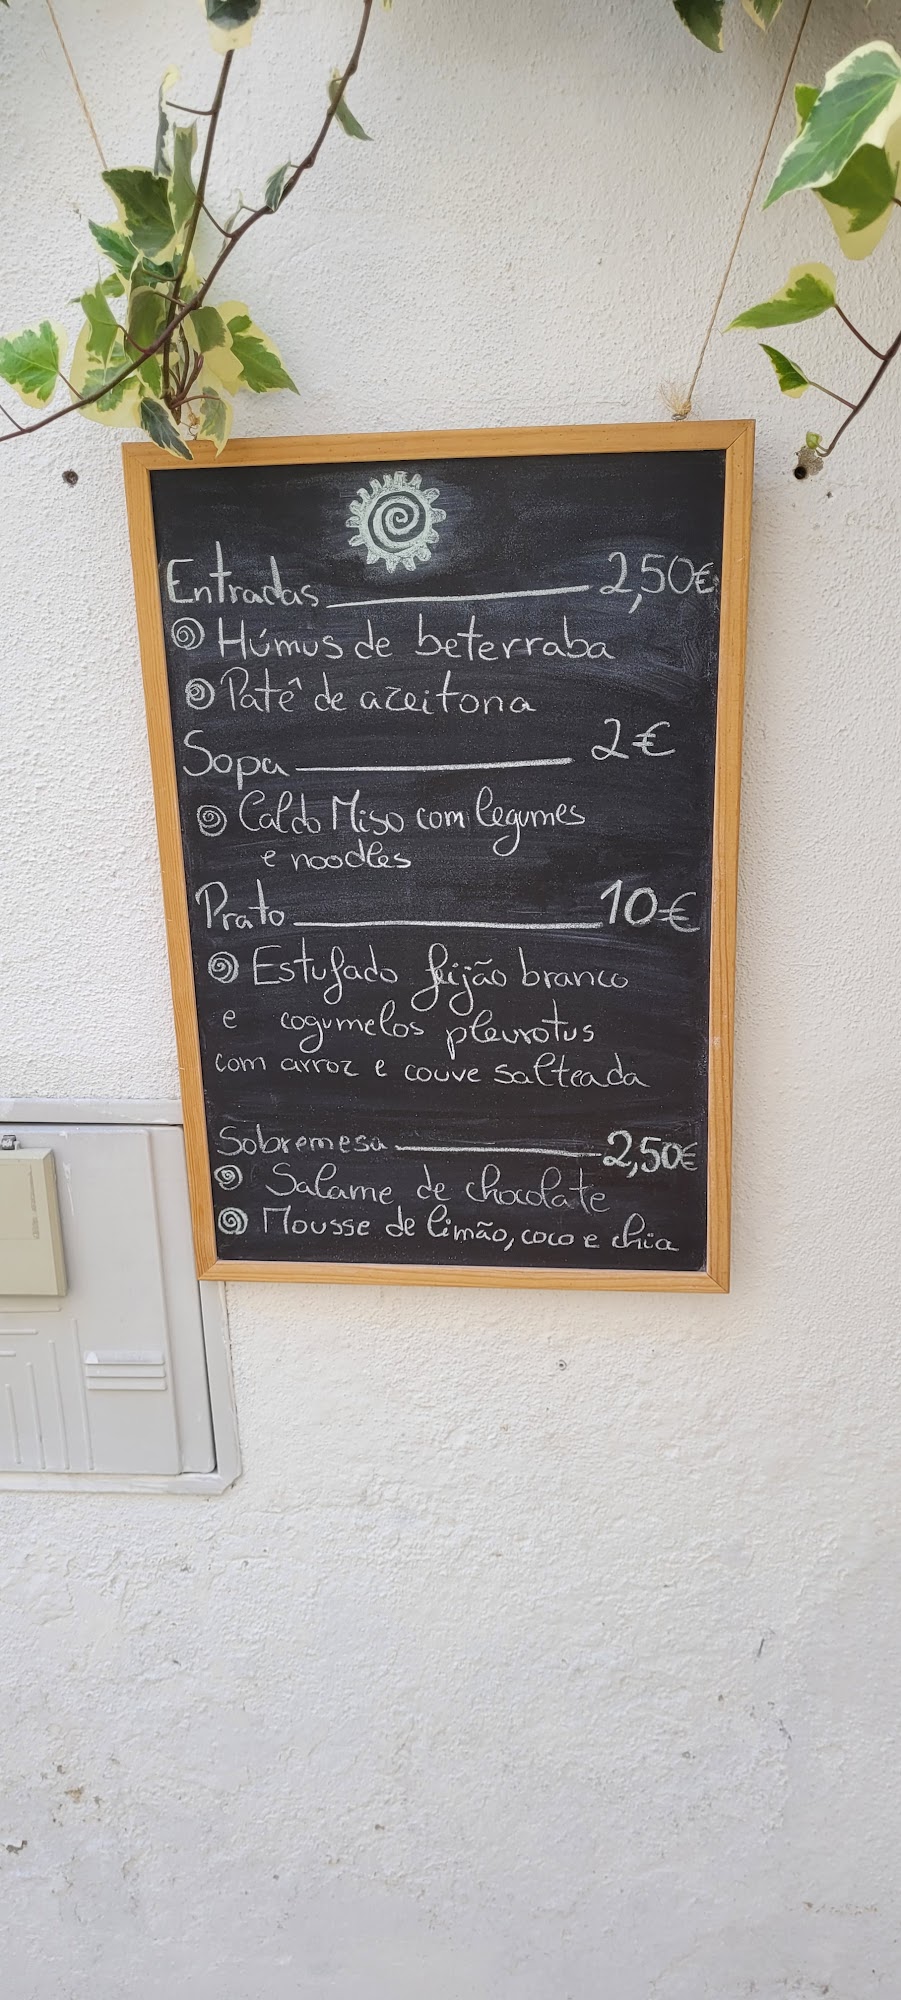 Entradas 2,50€
Húmus de beterraba
Patê de azeitona
Sopa 2€
Caldo Miso com legumes
e noodles
Prato 10€
Estufado feijão branco
e cogumelos pleurotus
com arroz e couve salteada
Sobremesa 2,50€
Salame de chocolate
Mousse de limão, coco e chia